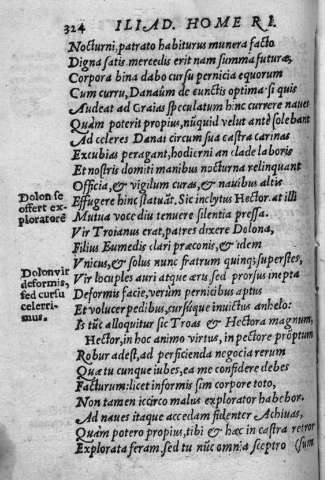 324 ILIAD. HOMERI.
Nocturni, patrato habiturus munera facto
Digna satis. mercedis erit nam summa futuræ,
Corpora bina dabo cursu pernicia equorum
Cum curru, Danaûm de cunctis optima · si quis
Audeat ad Graias speculatum hinc currere naues
Quàm poterit propius, nũquid velut antè solebant
Ad celeres Danai circum sua castra carinas
Excubias peragant, hodierni an clade laboris
Et nostris domiti manibus nocturna relinquant
Officia, & vigilum curas, & nauibus altis
Dolon se offert exploratorē
Effugere hinc statuãt. Sic inclytus Hector. at illi
Mutua voce diu tenuere silentia pressa.
Vir Troianus erat, patres dixere Dolona,
Filius Eumedis clari præconis, & idem
Vnicus, & solus nunc fratrum quinq; superstes,
Dolon vir deformis, sed cursu celerrimus.
Vir locuples auri atque æris, sed prorsus inepta
Deformis facie, verùm pernicibus aptus
Et volucer pedibus, cursúque inuictus anhelo:
Is tũc alloquitur sic Troas & Hectora magnum,
Hector, in hoc animo virtus, in pectore promptum
Robur adest, ad perficienda negocia rerum
Qua tu cunque iubes, ea me confidere debes
Facturum: licet informis sim corpore toto,
Non tamen iccirco malus explorator habebor.
Ad naues itaque accedam fidenter Achiuas,
Quàm potero propius, tibi & hæc in castra retror
Explorata feram. sed tu nũc omnia sceptro (sum